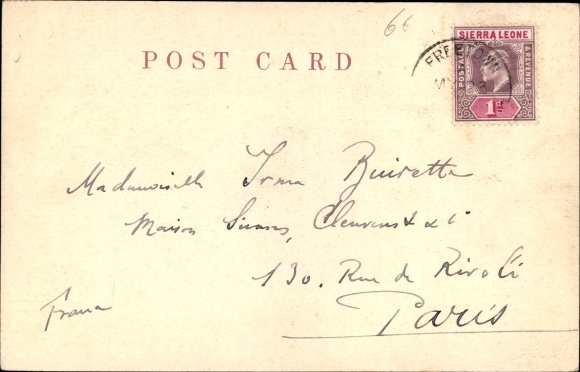 66
POST CARD
SIERRA LEONE
POSTAGE & REVENUE
1d
FREETOWN
Mademoiselle Irma Buirette
Maison Simons, Clemens & Cie
130. Rue de Rivoli
Paris
France